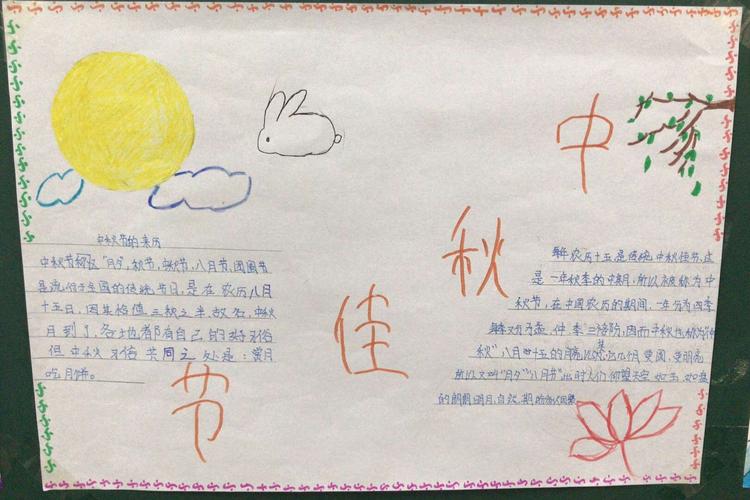 中
秋
佳
节
中秋节的来历
中秋节 月夕、秋节、 八月节、团圆节
是流行于全国的传统节日，是在农历八月
十五日，因其恰值三秋之半故名，中秋
月到了，各地也都有自己的好习俗
但中秋习俗共同之处是：赏月
吃月饼。
农历十五是传统中秋佳节，这
是一年秋季的中期，所以被称为中
秋节，在中国农历的期间，一年分为四季
季又分为孟、仲、季三 部份，因而中秋也称为仲
秋”八月十五的月亮比其 几月 圆，更明亮
所以又叫“月夕”“八月节”此时人们仰望天空如玉、如盘
的朗朗明月，自然 期盼家人团聚